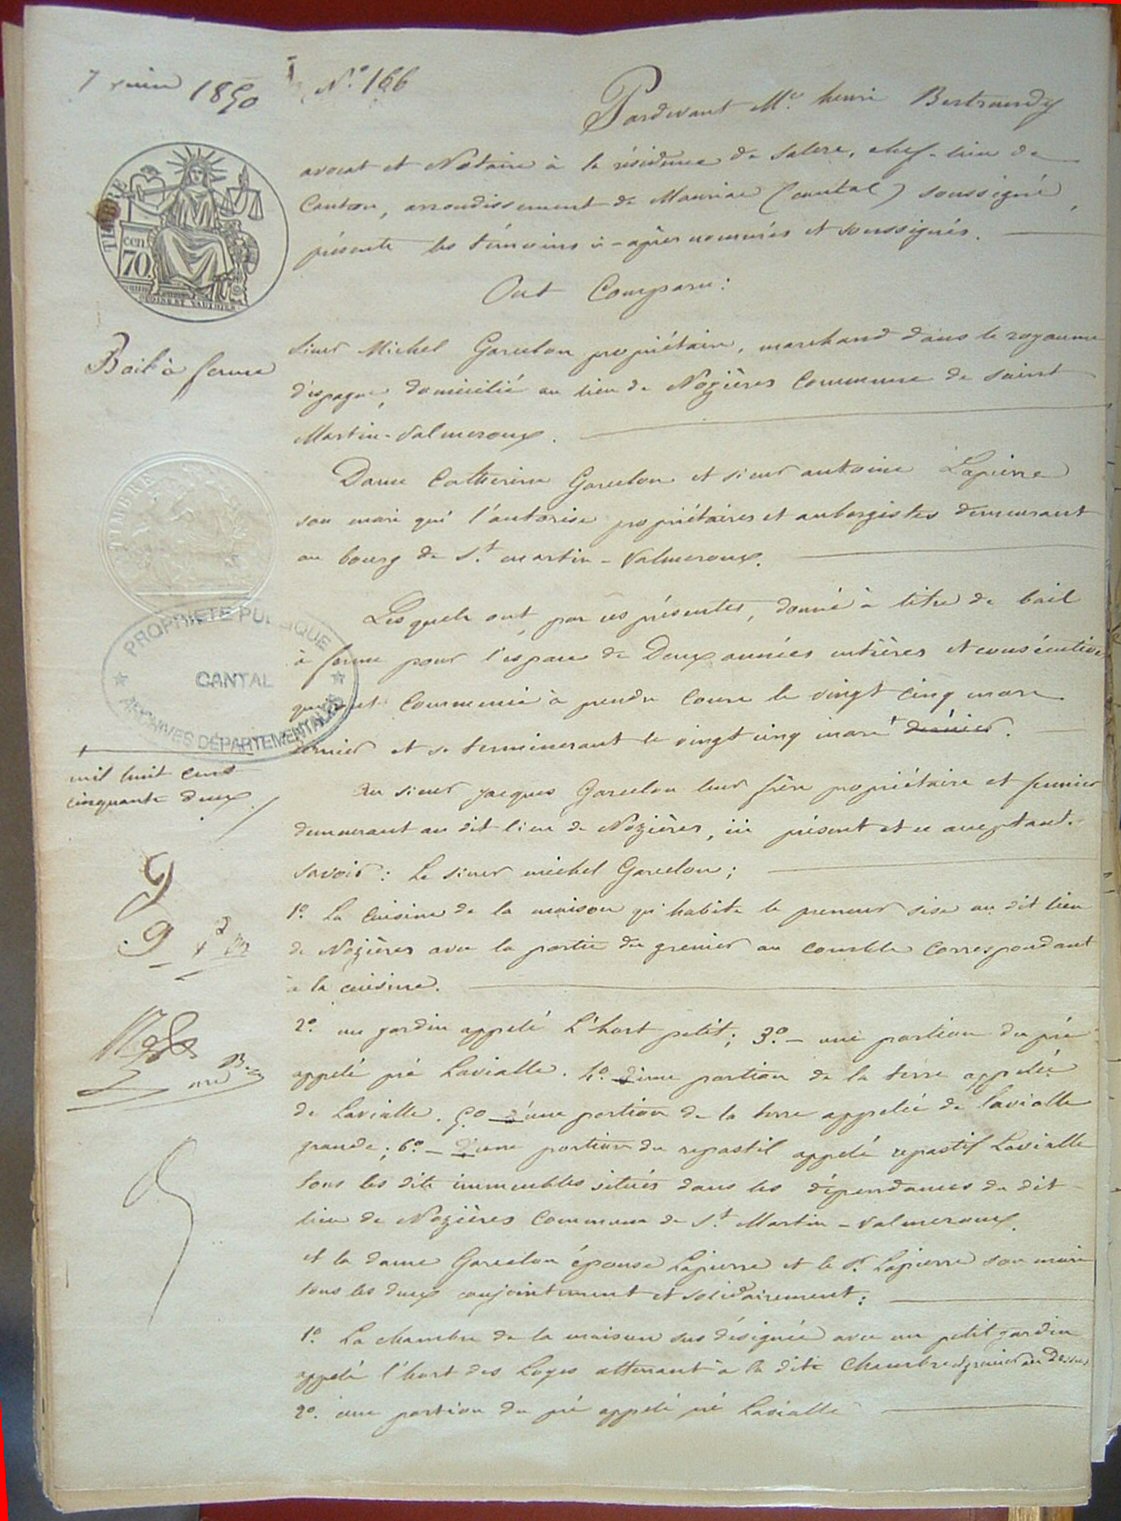 7 juin 1850 N.o 166
Pardevant Me. henri Bertrandy
avocat et Notaire à la résidence de Salers, chef-lieu de
Canton, arrondissement de Mauriac (cantal) soussigné,
présents les témoins ci-après nommés et soussignés.
Ont Comparu:
TIMBRE
cen
70
Bail à ferme
Sieur Michel Garcelon propriétaire, marchand dans le royaume
d'espagne, domicilié au lieu de Nozières Commune de saint
Martin-Valmeroux.
Dame Catherine Garcelon et sieur antoine Lapierre
son mari qui l'autorise propriétaires et aubergistes demeurant
au bourg de St. martin-Valmeroux.
TIMBRE
Lesquels ont, par ces présentes, donné à titre de bail
à ferme pour l'espace de Deux années entières et consécutives
qui ont Commencé à prendre Cours le vingt cinq mars
dernier et se termineront le vingt cinq mars t dernier.
PROPRIETE PUBLIQUE
CANTAL
ARCHIVES DÉPARTEMENTALES
t
mil huit cent
cinquante deux.
Au sieur jacques Garcelon leur frère propriétaire et fermier
demeurant au dit lieu de Nozières, ici présent et ce acceptant.
Savoir: Le sieur michel Garcelon;
1o. La Cuisine de la maison qu'habite le preneur sise au dit lieu
de Nozières avec la partie du grenier au comble Correspondant
à la cuisine.
9
9
2o. un jardin appelé L'hort petit; 3o.- une portion du pré
appelé pré Lavialle. 4o. d'une portion de la terre appelée
de Lavialle. 5o d'une portion de la terre appelée de lavialle
grande; 6o- d'une portion du repastil appelé repastil Lavialle
Tous les dits immeubles situés dans les dépendances du dit
lieu de Nozières Commune de St. Martin-Valmeroux.
et la dame Garcelon épouse Lapierre et le Sr. Lapierre son mari
tous les deux conjointement et solidairement:
1o. La chambre de la maison sus désignée avec un petit jardin
appelé l'hort des Loges attenant à la dite Chambre et grenier au dessus
2o. une portion du pré appelé pré Lavialle